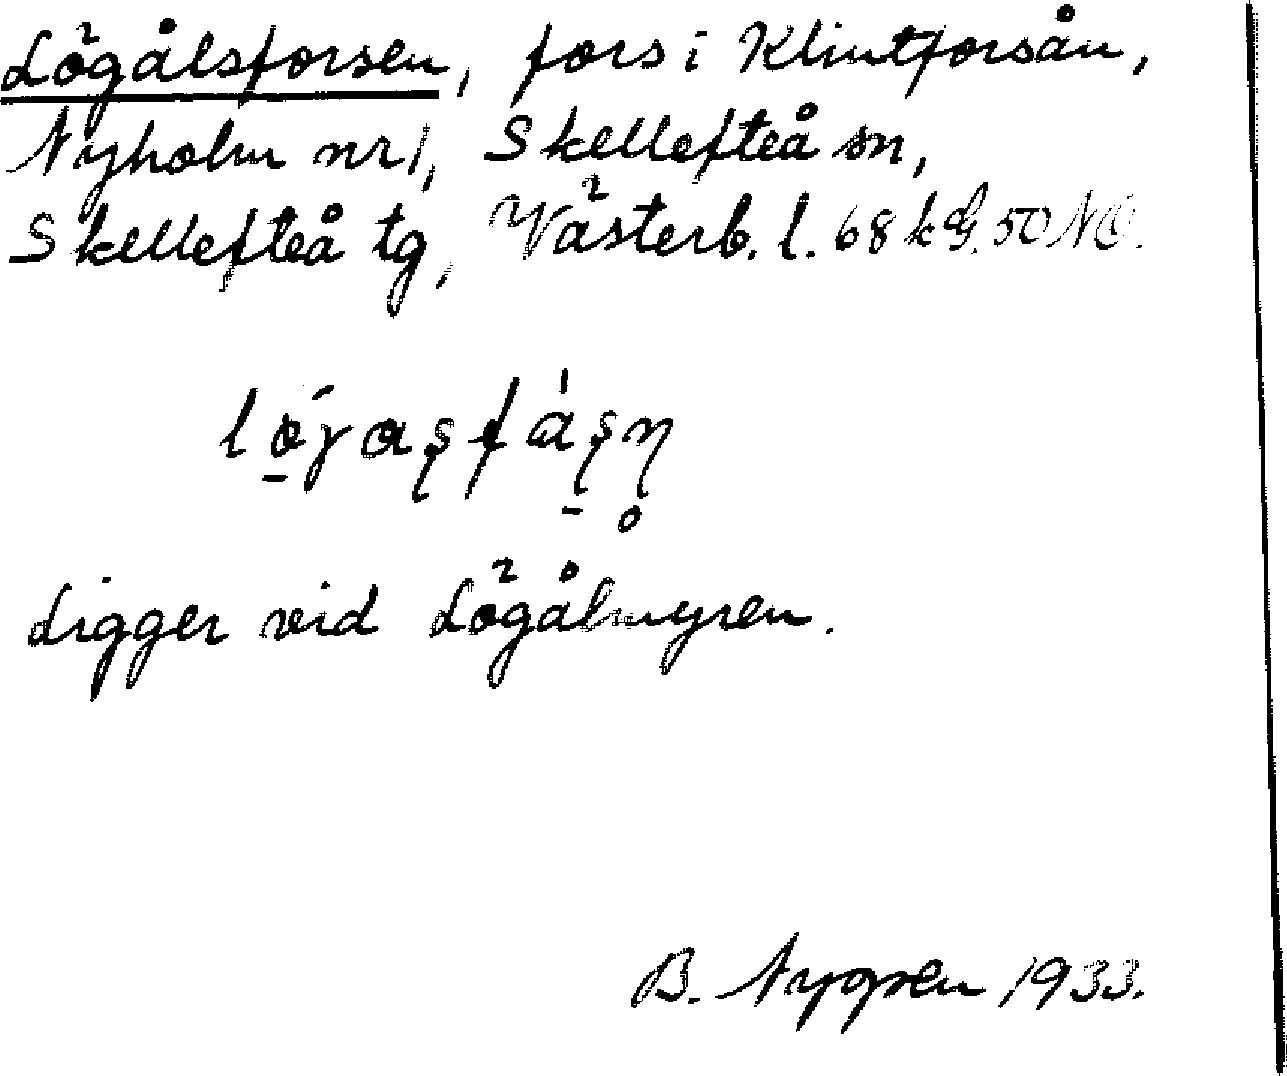 Lögålsforsen, fors i Klintforsån,
Nyholm nr 1, Skellefteå sn,
Skellefteå tg, Västerb. l. 68 k G. 50 NO.
Ligger vid Lögålmyren.
B. Nygren 1933.